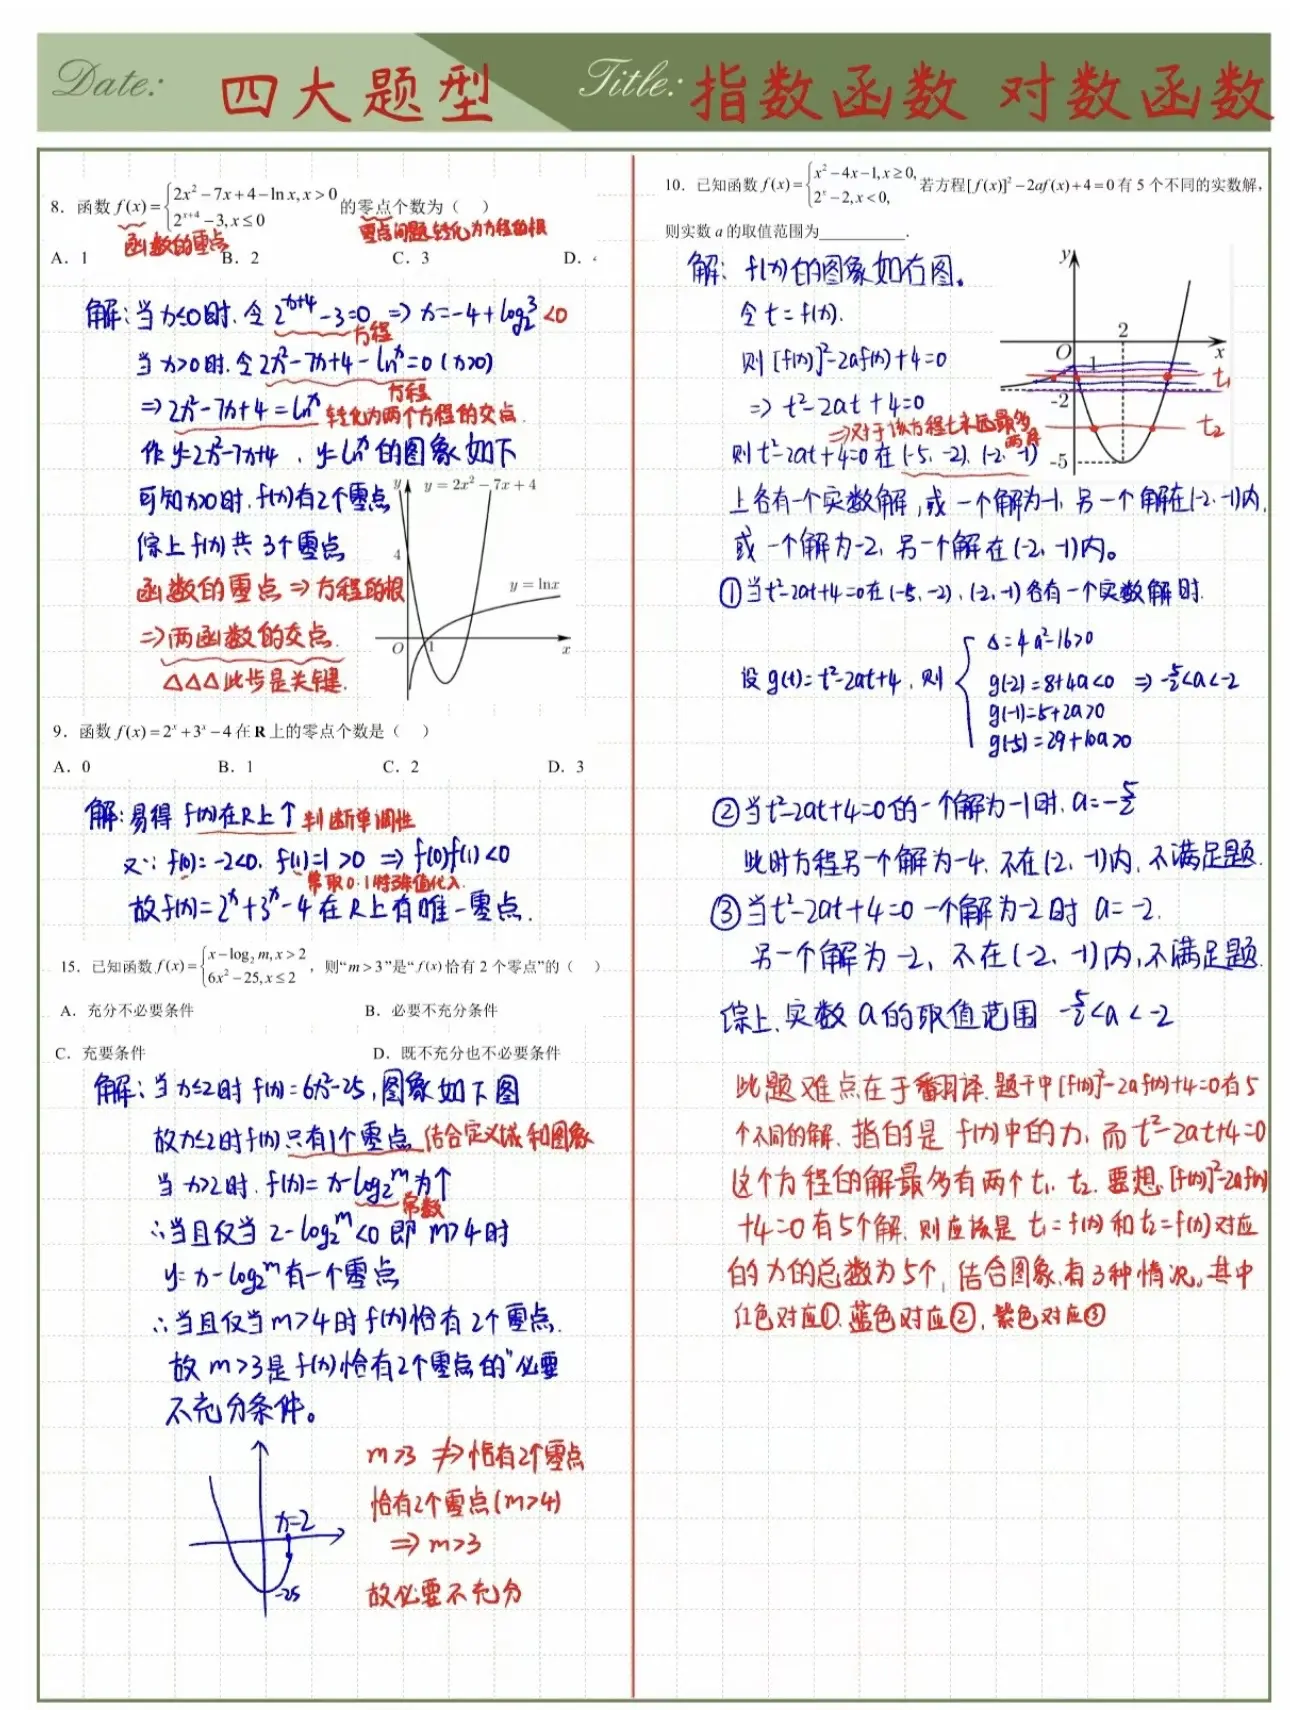 Date: 四大题型 Title: 指数函数 对数函数
8. 函数 f(x)={2x²-7x+4-ln x, x>0
2^(x+4)-3, x≤0 的零点个数为（ ）
函数的零点 零点问题转化为方程的根
A. 1 B. 2 C. 3 D.
解:当x≤0时.令2^(x+4)-3=0 ⇒ x=-4+log₂3 <0
方程
当x>0时.令2x²-7x+4-lnx=0 (x>0)
方程
⇒ 2x²-7x+4=lnx 转化为两个方程的交点.
作y=2x²-7x+4 、y=lnx的图象如下
可知x>0时.f(x)有2个零点
综上f(x)共3个零点
函数的零点⇒方程的根
⇒两函数的交点.
△△△此步是关键.
y y=2x²-7x+4
4
y=lnx
O 1 x
9. 函数 f(x)=2^x+3^x-4 在 R 上的零点个数是（ ）
A. 0 B. 1 C. 2 D. 3
解:易得 f(x)在R上↑ 判断单调性
又∵ f(0)=-2<0. f(1)=1>0 ⇒ f(0)f(1)<0
常取0.1特殊值代入.
故f(x)=2^x+3^x-4在R上有唯一零点.
15. 已知函数 f(x)={x-log₂m, x>2
6x²-25, x≤2 ，则“m>3”是“f(x)恰有2个零点”的（ ）
A. 充分不必要条件 B. 必要不充分条件
C. 充要条件 D. 既不充分也不必要条件
解:当x≤2时 f(x)=6x²-25,图象如下图
故x≤2时f(x)只有1个零点 结合定义域和图象
当x>2时.f(x)=x-log₂m为↑
常数
∴当且仅当 2-log₂m<0 即 m>4时
y=x-log₂m有一个零点
∴当且仅当m>4时f(x)恰有2个零点.
故m>3是f(x)恰有2个零点的“必要
不充分条件。
x=2
-25
m>3 ⇏恰有2个零点
恰有2个零点(m>4)
⇒ m>3
故必要不充分
10. 已知函数 f(x)={x²-4x-1, x≥0,
2^x-2, x<0, 若方程[f(x)]²-2af(x)+4=0有5个不同的实数解,
则实数a的取值范围为________.
解: f(x)的图象如右图。
令t=f(x).
则[f(x)]²-2af(x)+4=0
⇒ t²-2at+4=0
⇒对于该方程t永远最多
两解
则t²-2at+4=0在(-5,-2)、(-2,-1)
y
2
O 1 x
t₁
-2
t₂
-5
上各有一个实数解,或一个解为-1,另一个解在(-2,-1)内,
或一个解为-2,另一个解在(-2,-1)内。
①当t²-2at+4=0在(-5,-2)、(-2,-1)各有一个实数解时.
设g(t)=t²-2at+4 ,则 {△=4a²-16>0
g(-2)=8+4a<0 ⇒ -5/2<a<-2
g(-1)=5+2a>0
g(-5)=29+10a>0
②当t²-2at+4=0的一个解为-1时,a=-5/2
此时方程另一个解为-4,不在(-2,-1)内,不满足题.
③当t²-2at+4=0 一个解为-2时 a=-2.
另一个解为-2,不在(-2,-1)内,不满足题.
综上,实数a的取值范围 -5/2<a<-2
此题难点在于翻译.题干中[f(x)]²-2af(x)+4=0有5
个不同的解、指的是f(x)中的x,而t²-2at+4=0
这个方程的解最多有两个t₁、t₂.要想[f(x)]²-2af(x)
+4=0有5个解.则应该是t₁=f(x)和t₂=f(x)对应
的x的总数为5个,结合图象,有3种情况,其中
红色对应①,蓝色对应②,紫色对应③